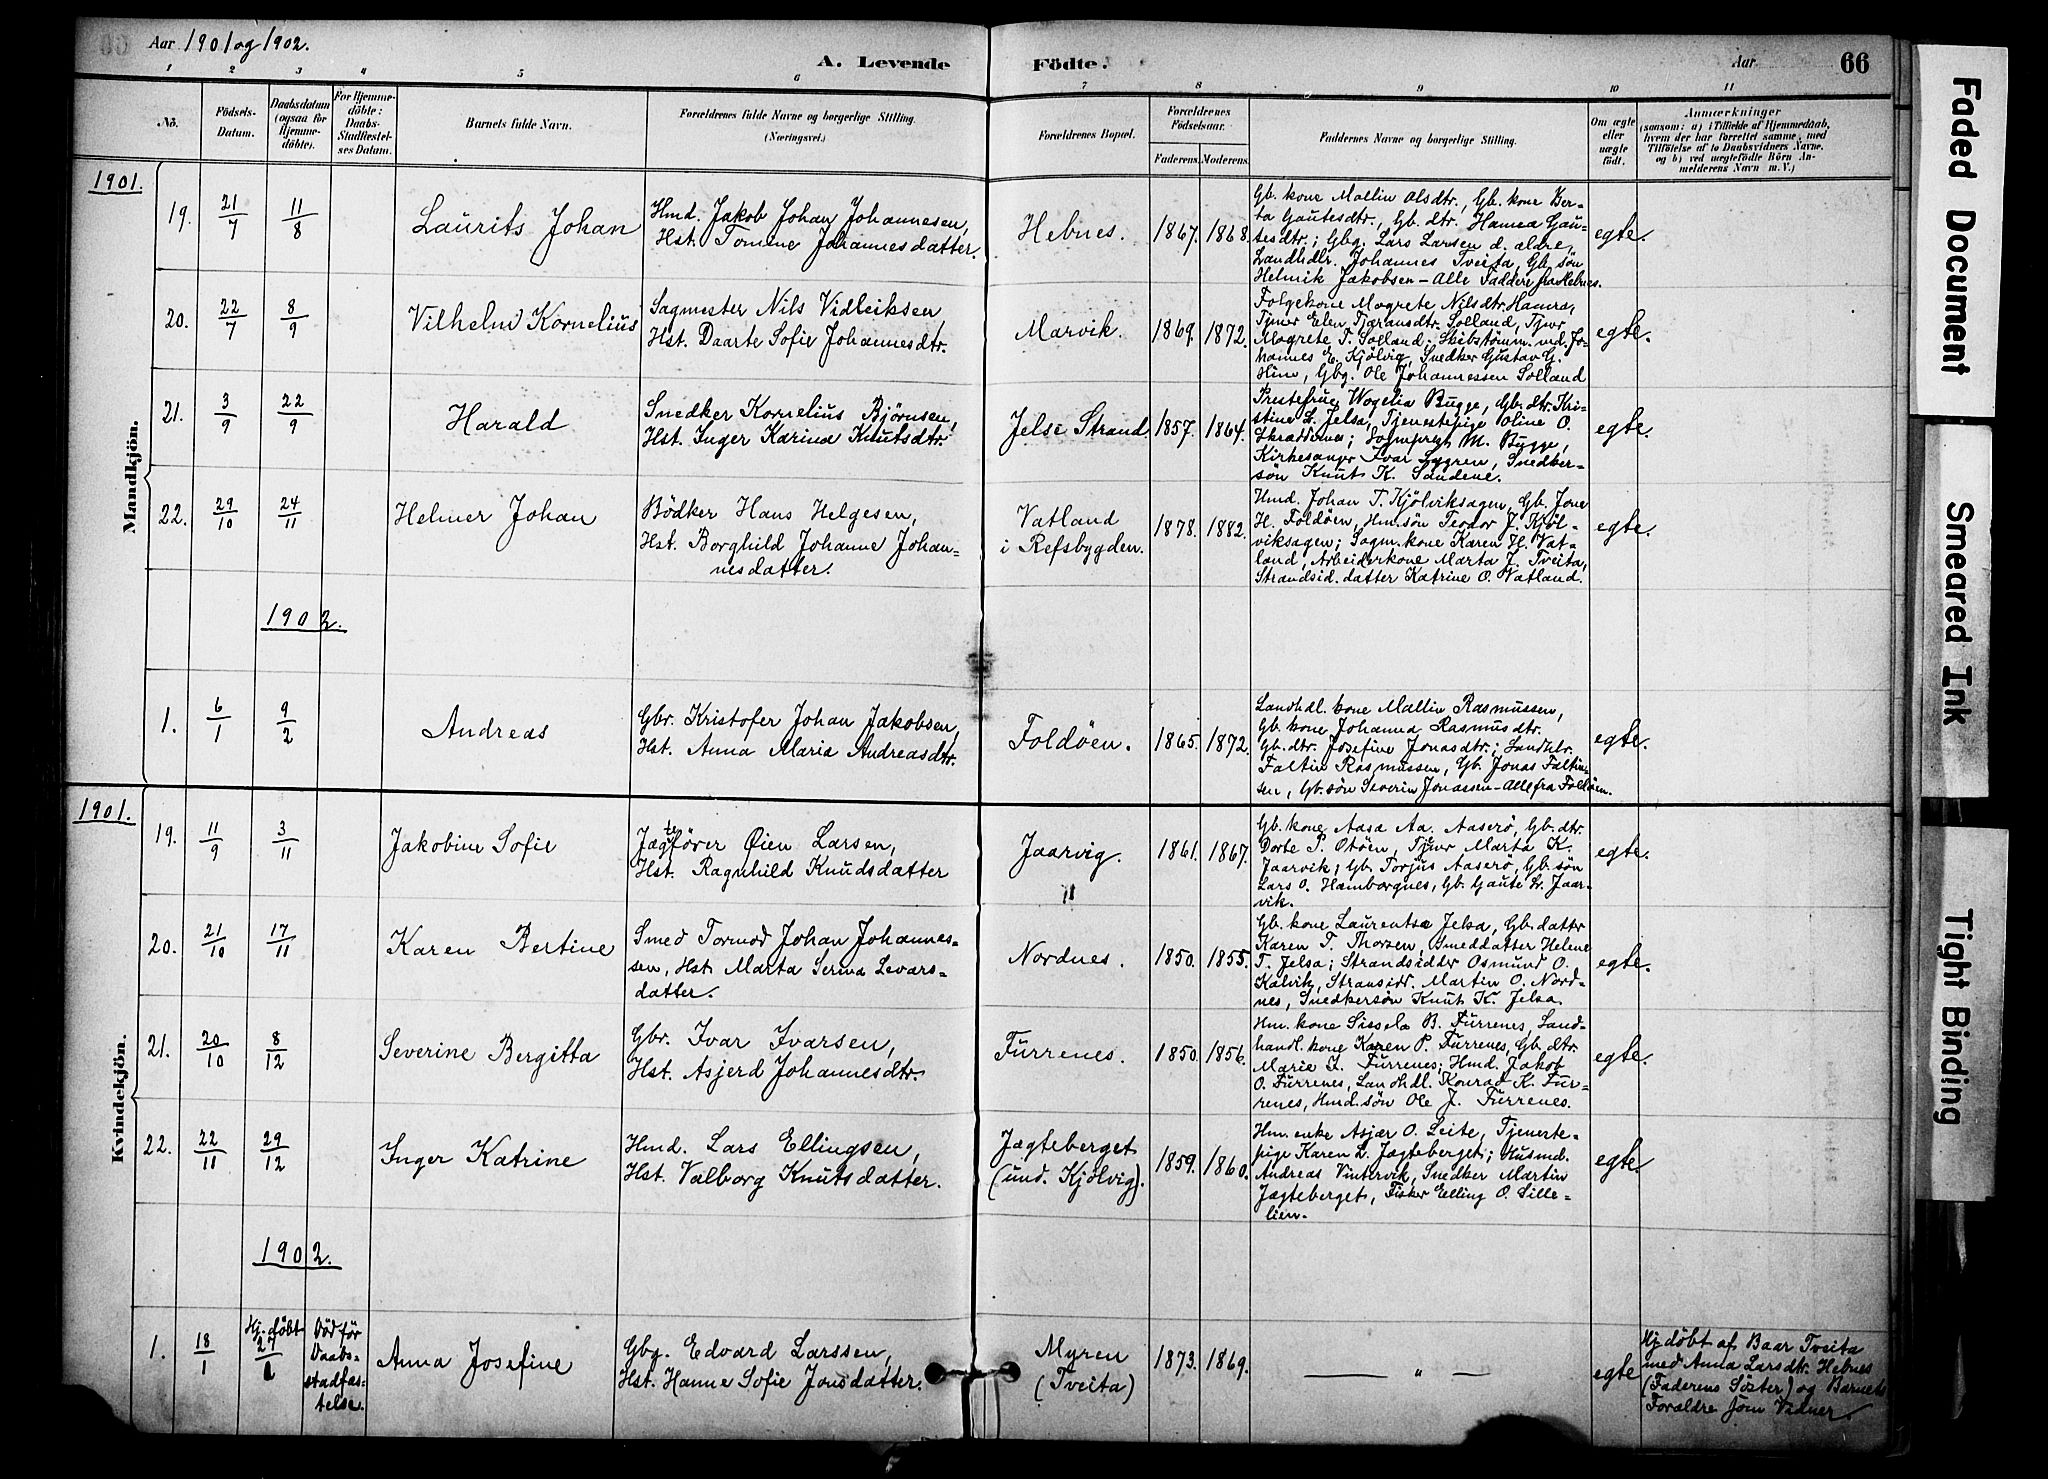 Aar 1901 og 1902. A. Levende Födte. Aar. 66
1 2 3 4 5 6 7 8 9 10 11
No.
Födsels-
Datum.
Daabsdatum
(ogsaa for
Hjemme-
döbte).
For Hjemme-
döbte:
Daabs-
Stadfæstel-
ses Datum.
Barnets fulde Navn.
Forældrenes fulde Navne og borgerlige Stilling.
(Næringsvei.)
Forældrenes Bopæl.
Forældrenes
Födselsaar.
Faderens. Moderens.
Faddernes Navne og borgerlige Stilling.
Om ægte
eller
uægte
födt.
Anmærkninger
(saasom: a) i Tilfælde af Hjemmedaab,
hvem der har forrettet samme, med
Tilföielse af to Daabsvidners Navne,
og b) ved uægtefödte Börn An-
melderens Navn m. V.)
Mandkjön.
1901.
19. 21/7 11/8 Laurits Johan
Hmd. Jakob Johan Johannesen,
Hst. Tomine Johannesdatter.
Hebnes. 1867. 1868.
Gb. kone Mallin Olsdtr., Gb. kone Ber-
ta Gautesdtr., Gb. dtr. Hanna Gau-
tesdtr.; Gbg. Lars Larsen d. ældre,
Landhdlr. Johannes Tveita, Gb. søn
Helmik Jakobsen – Alle Faddere fra Hebnes.
egte.
20. 22/7 8/9 Vilhelm Kornelius
Sagmester Nils Vidleiksen,
Hst. Daarte Sofie Johannesdtr.
Marvik. 1869. 1872.
Folgekone Magrete Nilsdtr. Hamra,
Elen Tjøransdtr. Solland,
Magrete T. Solland; Skibstømm. md. Jo-
hannes E. Kjölvig, Snedker Gustav G.
Hinn, Gbg. Ole Johannessen Solland
egte.
21. 3/9 22/9 Harald
Snedker Kornelius Bjørnsen,
Hst. Inger Karina Knutsdtr.
Jelse Strand 1857. 1864.
Prestefrue Wogelia Bugge, Gb. dtr. Kri-
stine L. Jelsa, Tjenestepige Oline O.
Sognprest M. Bugge,
Kirkesanger Ivar Lygren, Snedker-
søn Knut K. Sandene.
egte.
22. 29/10 24/11 Helmer Johan
Bödker Hans Helgesen,
Hst. Borghild Johanne Johan-
nesdatter.
Vatland
i Refsbygden. 1878. 1882.
Hmd. Johan T. Kjölviksagen, Gb. Jone
H. Foldöen, Hm. søn Teodor J. Kjöl-
viksagen; Sagm. kone Karen H. Vat-
land, Arbeiderkone Marta J. Tveita,
Strandsid. datter Katrine O. Vatland.
egte.
1902.
1. 6/1 9/2 Andreas
Gbr. Kristofer Johan Jakobsen,
Hst. Anna Maria Andreasdtr.
Foldöen. 1865. 1872.
Landhdl. kone Mallin Rasmussen,
Gb. kone Johanna Rasmusdtr.
Gb. dtr. Josefine Jonasdtr.; Landhdlr.
Faltin Rasmussen, Gb. Jonas Faltin-
sen, Gb. søn Severin Jonassen – Alle fra Foldöen.
egte.
Kvindekjön.
1901.
19. 11/9 3/11 Jakobine Sofie
Jægtefører Øien Larsen,
Hst. Ragnhild Knudsdatter
Jaarvig. 1861. 1867.
"
Gb. kone Aasa Aa. Aaserö, Gb. dtr.
Dorte P. Otöen, Marta K.
Jaarvik; Gb. Torjus Aaserö, Gb. søn
Lars O. Hamborgnes, Gb. Gaute Jaar-
vik.
egte.
20. 21/10 17/11 Karen Bertine
Smed Tormod Johan Johannes-
sen, Hst. Marta Serina Sevars-
datter.
Nordnes. 1850. 1855.
Gb. kone Laurentse Jelsa, Gb. datter
Karen T. Thorsen, Smeddatter Helene
T. Jelsa; Strandsidder Osmund O.
Kalvik, Martin O. Nord-
nes, Snedkersøn Knut K. Jelsa.
egte.
21. 20/10 8/12 Severine Bergitta
Gbr. Ivar Ivarsen,
Hst. Asjerd Johannesdtr.
Furrenes. 1850. 1856.
Hm. kone Sissela B. Furrenes, Land-
handl. kone Karen P. Furrenes, Gb. dtr.
Marie I. Furrenes; Hmd. Jakob
O. Furrenes, Landhdl. Konrad K. Fur-
renes, Hmd. søn Ole J. Furrenes.
egte.
22. 22/11 29/12 Inger Katrine
Hmd. Lars Ellingsen,
Hst. Valborg Knutsdatter.
Jægteberget
(und. Kjölvig). 1859. 1860.
Hm. enke Asjær O. Leite, Tjeneste-
pige Karen L. Jægteberget; Husmd.
Andreas Vintervik, Snedker Martin
Jægteberget, Fisker Elling O. Lille-
lien.
egte.
1902.
1. 18/1 Hj. döbt 27/1 Död för
Daabs-
stadfæs-
telse.
Anna Josefine
Gbg. Edvard Larssen,
Hst. Hanne Sofie Jonsdatter.
Myren
(Tveita) 1873. 1869.
— " —
egte
Hj. döbt af Baar Tveita
med Anna Larsdtr. Hebnes
(Faderens Söster) og Barnets
Forældre som Vidner.
Faded Document
Smeared Ink
Tight Binding